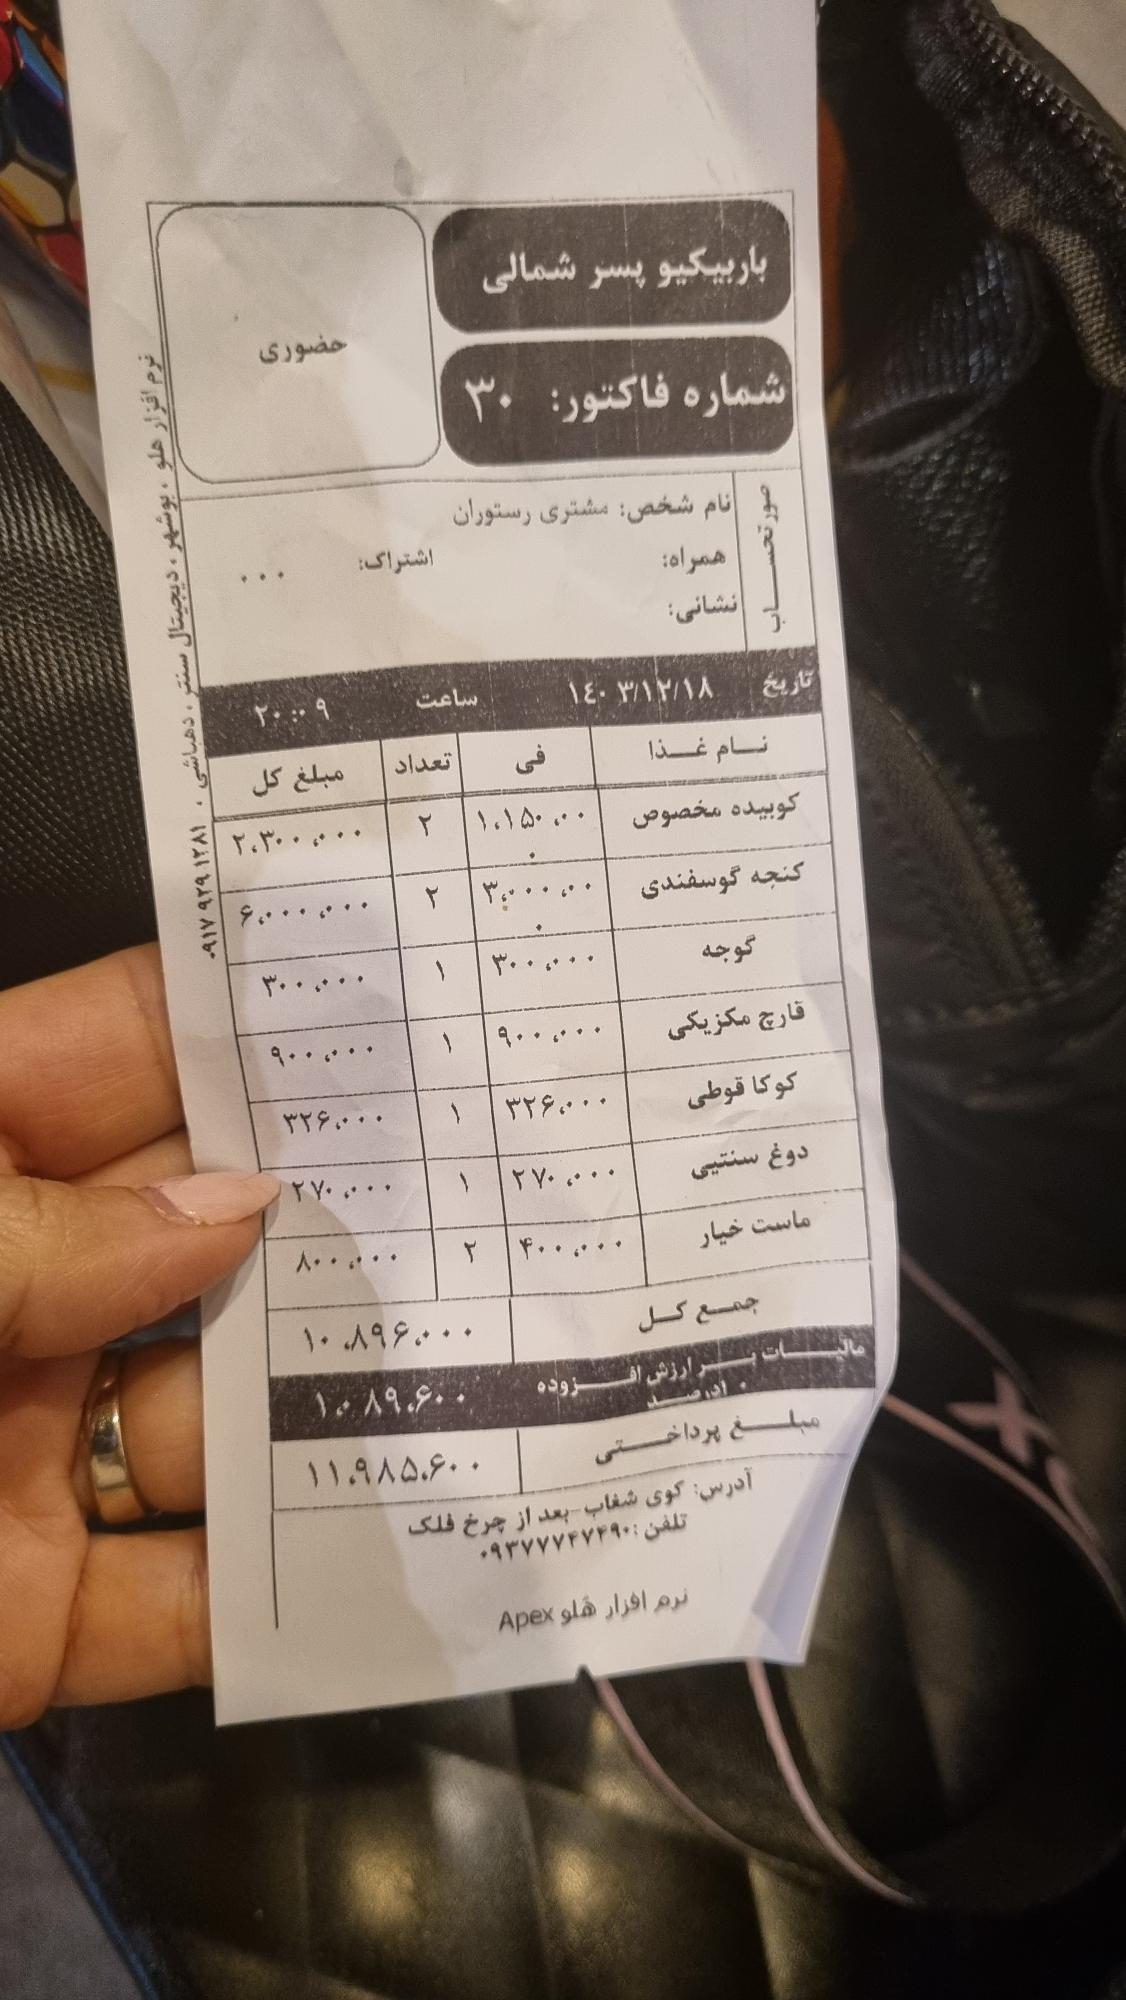 باربیکیو پسر شمالی
شماره فاکتور: ۳۰
حضوری
صورتحساب
نام شخص: مشتری رستوران
همراه:
اشتراک: ۰۰۰
نشانی:
تاریخ ۱۴۰۳/۱۲/۱۸ ساعت ۲۰:۰۹
نام غذا فی تعداد مبلغ کل
کوبیده مخصوص ۱،۱۵۰،۰۰۰ ۲ ۲،۳۰۰،۰۰۰
کنجه گوسفندی ۳،۰۰۰،۰۰۰ ۲ ۶،۰۰۰،۰۰۰
گوجه ۳۰۰،۰۰۰ ۱ ۳۰۰،۰۰۰
قارچ مکزیکی ۹۰۰،۰۰۰ ۱ ۹۰۰،۰۰۰
کوکا قوطی ۳۲۶،۰۰۰ ۱ ۳۲۶،۰۰۰
دوغ سنتیی ۲۷۰،۰۰۰ ۱ ۲۷۰،۰۰۰
ماست خیار ۴۰۰،۰۰۰ ۲ ۸۰۰،۰۰۰
جمع کل ۱۰،۸۹۶،۰۰۰
مالیات بر ارزش افزوده ۱۰درصد ۱،۰۸۹،۶۰۰
مبلغ پرداختی ۱۱،۹۸۵،۶۰۰
آدرس: کوی شغاب-بعد از چرخ فلک
تلفن:۰۹۳۷۷۷۴۷۴۹۰
نرم افزار هلو Apex
نرم افزار هلو ، بوشهر ، دیجیتال سنتر ، دهباشی ، ۰۹۱۷ ۹۲۹ ۱۲۸۱